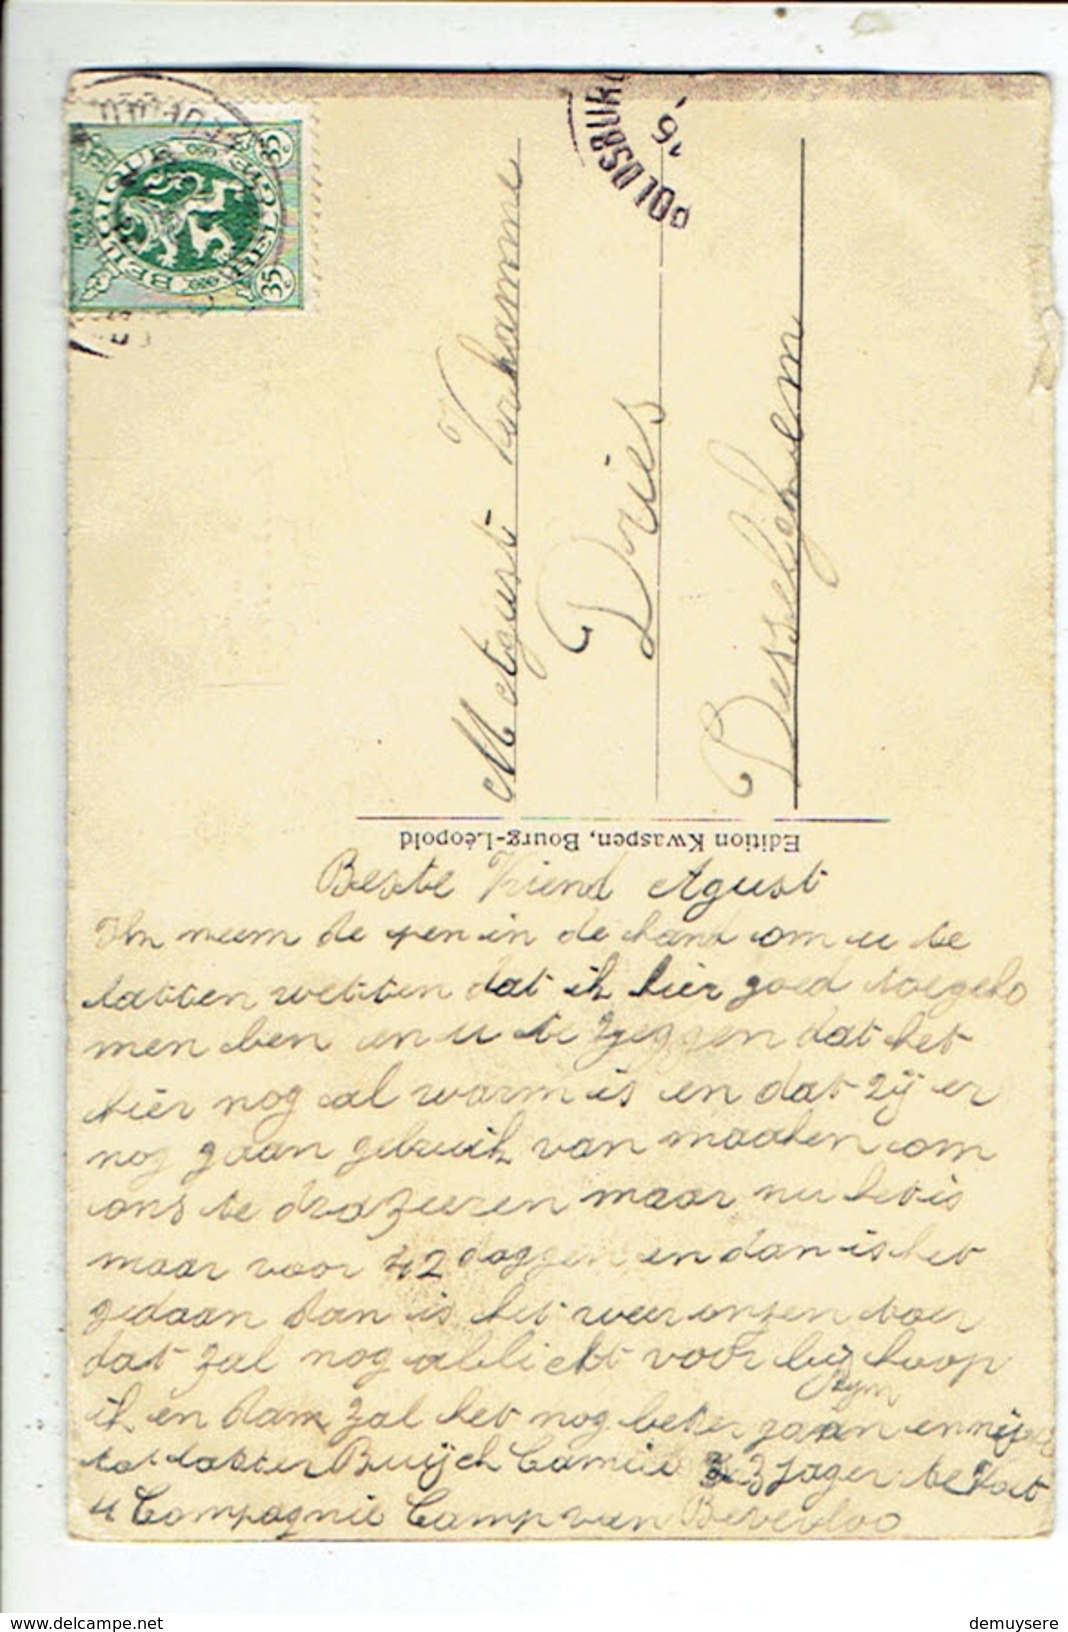 BELGIQUE BELGIË
35c 35c
POLDSBURG
16
M Agust Verhamme
Dries
Desselghem
Edition Kwaspen, Bourg-Léopold
Beste Vriend Agust
Ikn neem de pen in de hand om u te
latten wetten dat ik hier goed toegeko
men ben en u te zeggen dat het
hier nog al warm is en dat zij er
nog gaan gebruik van maaken om
ons te drazeeren maar nu het is
maar voor 42 daggen en dan is het
gedaan dan is het weer onzen toer
dat zal nog allicht voor bij hoop
ik en dan zal het nog beter gaan en
tot later Buijck Camiel 3 Jager te Voet
4 Compagnie Camp van Beverloo
demuysere
www.delcampe.net